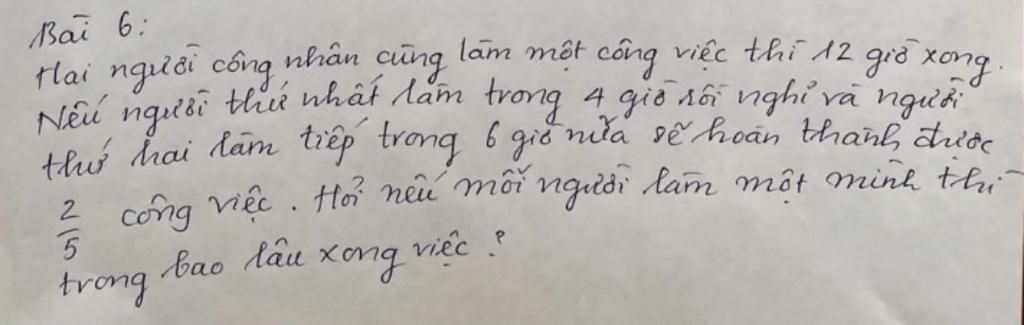 Bài 6:
Hai người công nhân cùng làm một công việc thì 12 giờ xong.
Nếu người thứ nhất làm trong 4 giờ rồi nghỉ và người
thứ hai làm tiếp trong 6 giờ nữa sẽ hoàn thành được
2/5 công việc. Hỏi nếu mỗi người làm một mình thì
trong bao lâu xong việc?